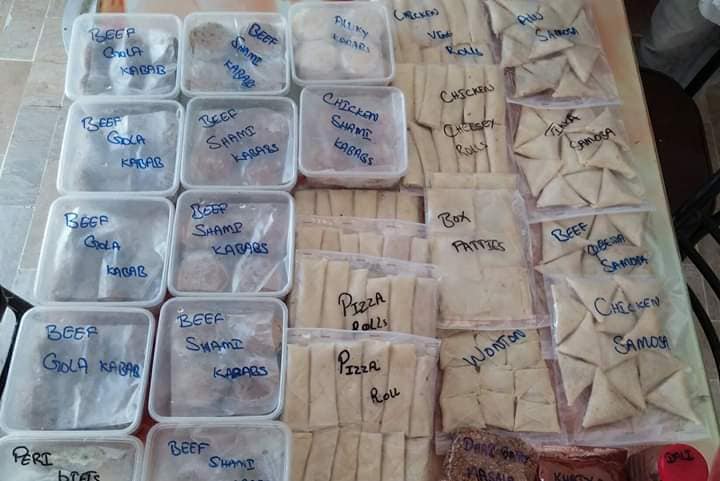 BEEF
GOLA
KABAB
BEEF
SHAMI
KABABS
ALUKY
KABABS
CHICKEN
VEG
ROLLS
ALU
SAMOSA
BEEF
GOLA
KABAB
BEEF
SHAMI
KABABS
CHICKEN
SHAMI
KABABS
CHICKEN
CHEESEY
ROLLS
SAMOSA
BEEF
GOLA
KABAB
BEEF
SHAMI
KABABS
BOX
PATTIES
BEEF
SAMOSA
BEEF
GOLA KABAB
BEEF
SHAMI
KABABS
PIZZA
ROLLS
PIZZA
ROLL
WONTON
CHICKEN
SAMOSA
PERI
BEEF
SHAMI
KABABS
MASALA